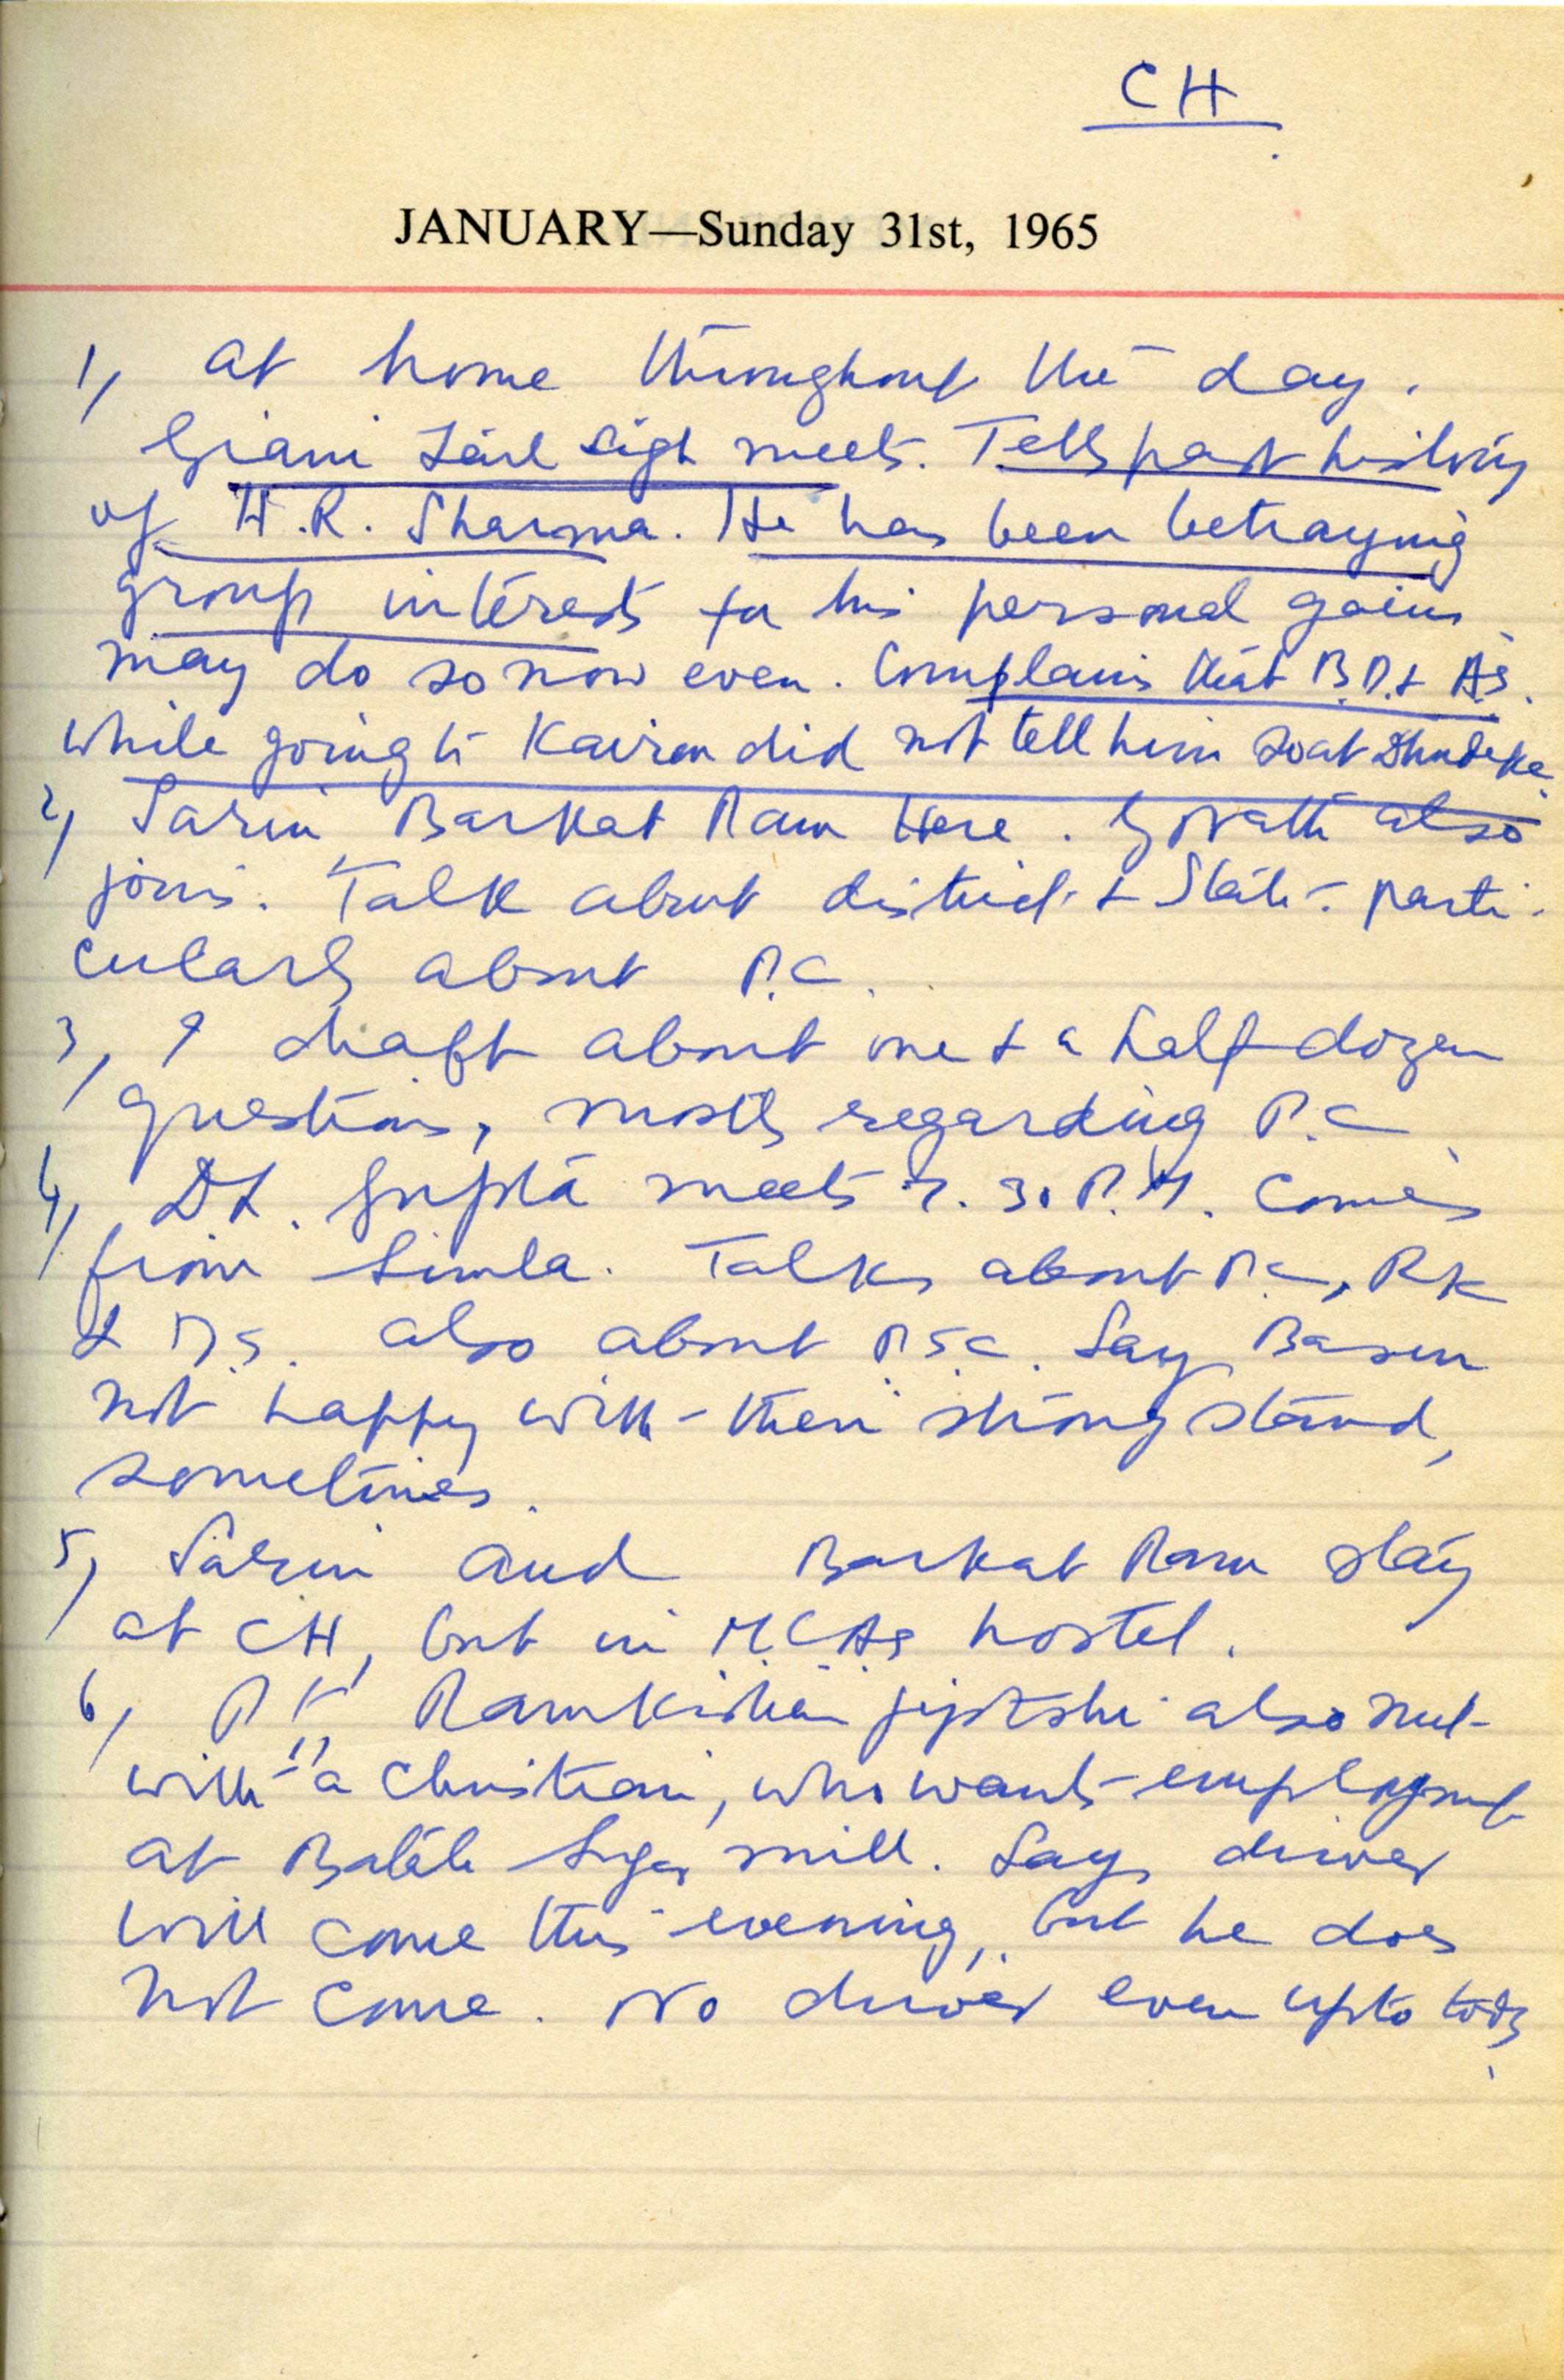 CH
JANUARY—Sunday 31st, 1965
1, at home throughout the day.
Giani Zail Sigh meets. Tells past history
of H.R. Sharma. He has been betraying
group interests for his personal gains
may do so now even. Complains that B.D. & AS.
while going to Kairon did not tell him so at
2, Sarin Barkat Ram Here. also
joins. Talk about district & State - parti-
cularly about P.C.
3, I draft about one & a half dozen
questions, mostly regarding P.C.
4, D.L. Gupta meets P.M. comes
from Simla. Talks about P.C., RK
& D.S. also about P.S.C. Say
not happy with their strong stand,
sometimes.
5, Sarin and Barkat Ram stay
at CH, but in M.L.As hostel.
6, Pt. Ramkishan also met
with a Christian, who wants employment
at Batala Sugar mill. Says driver
will come this evening, but he does
not come. No driver even upto today